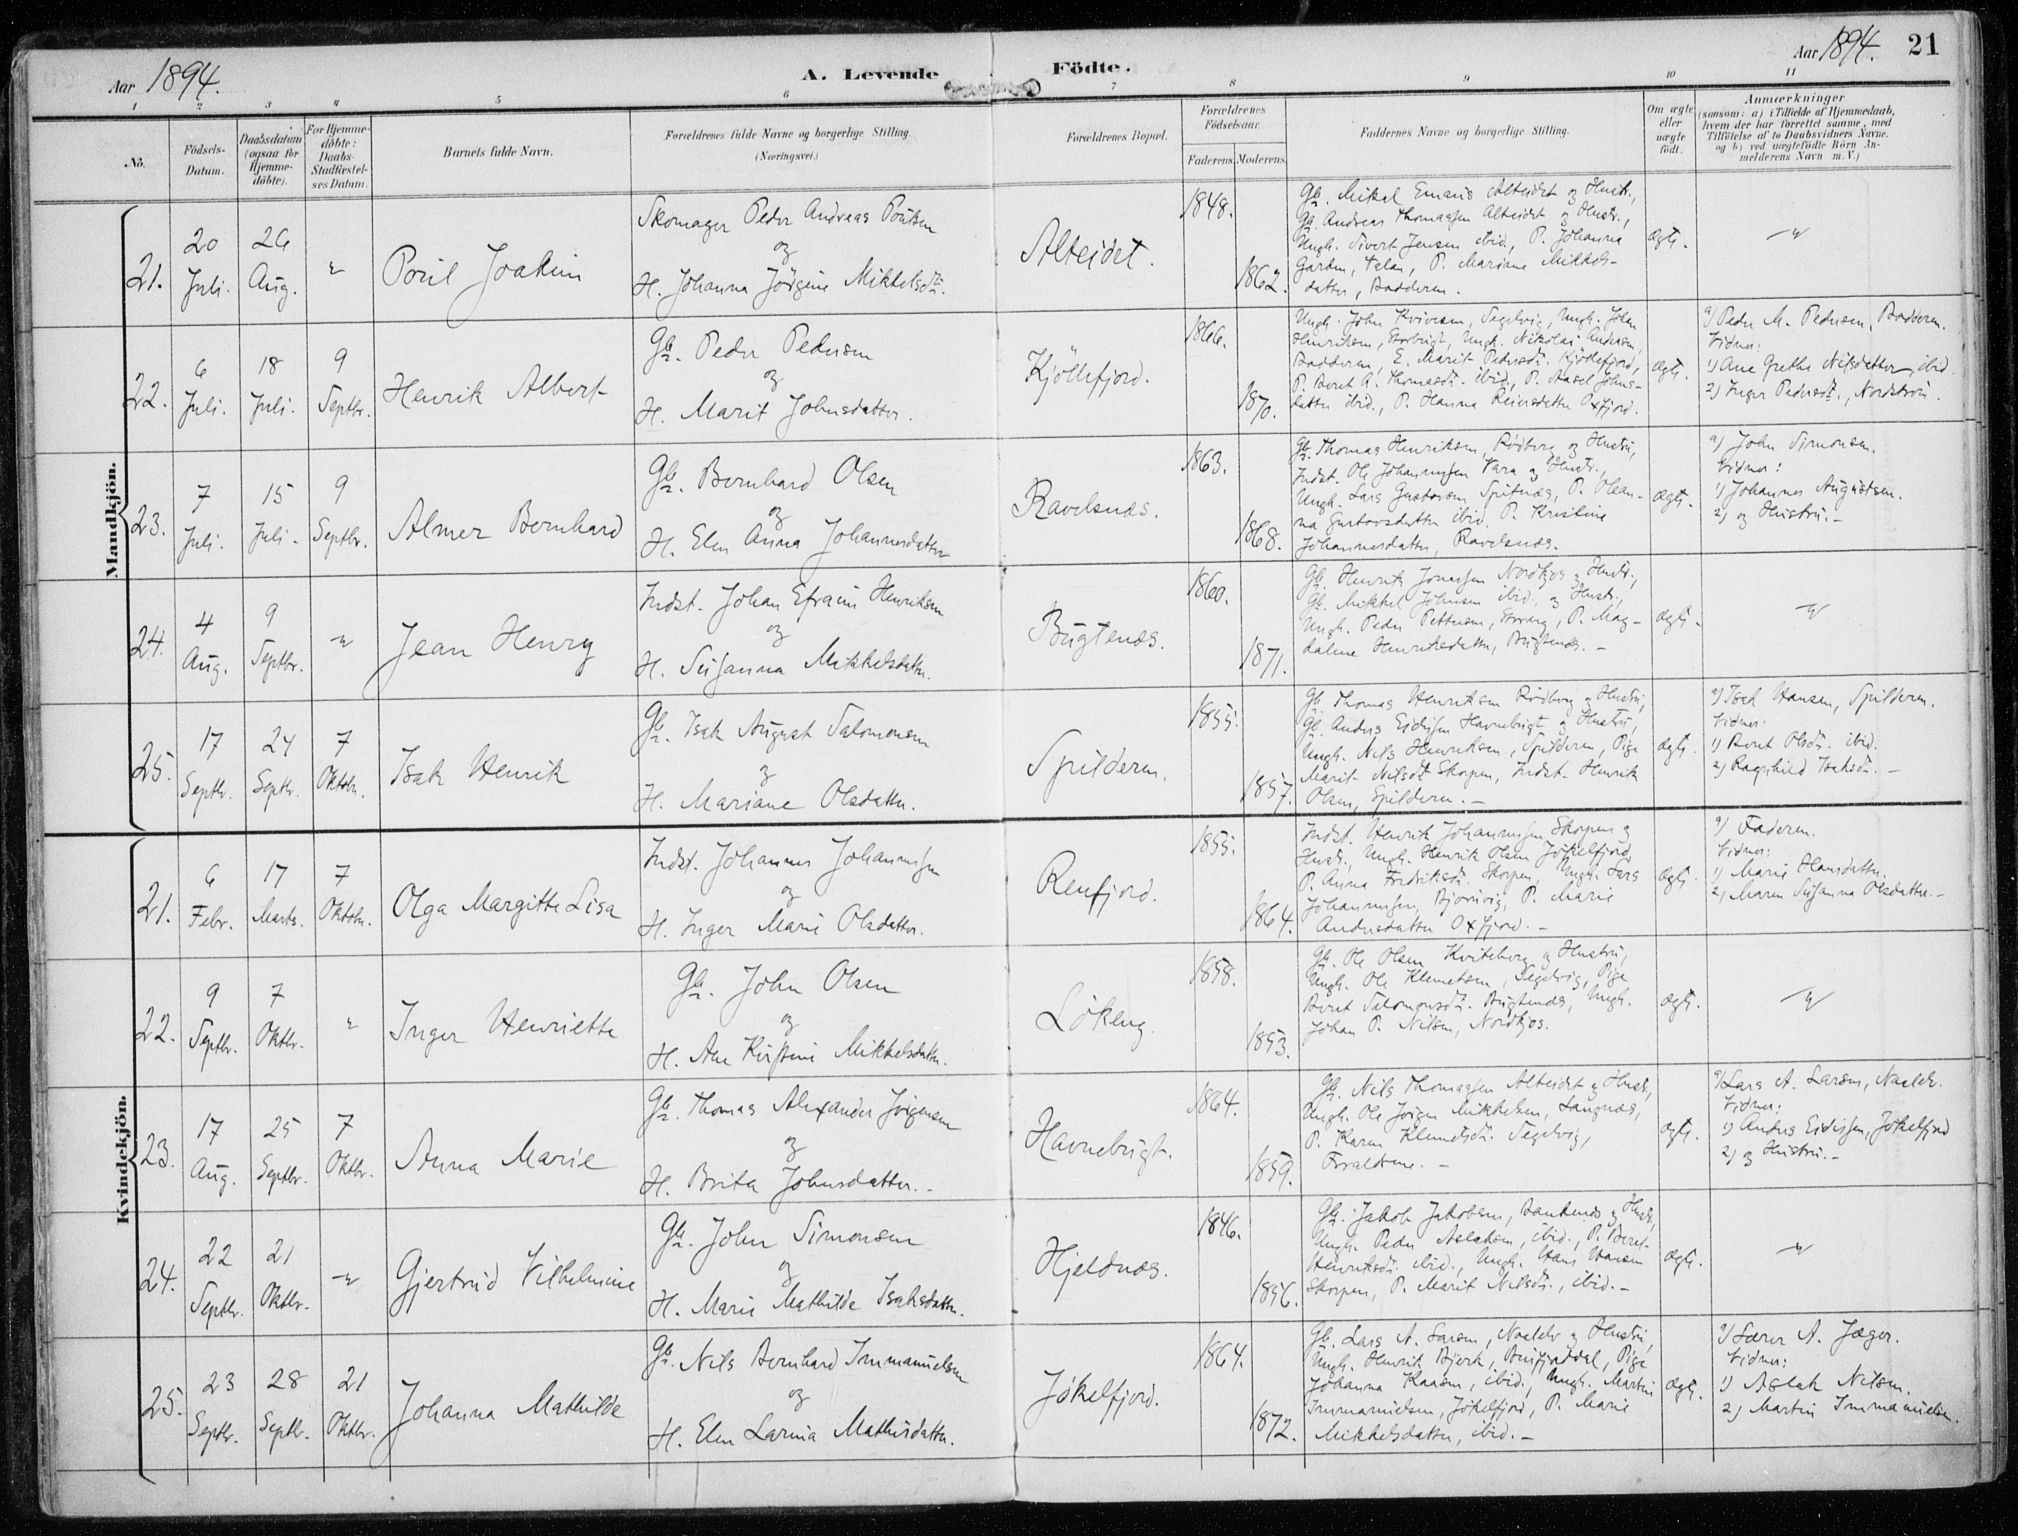 Aar 1894.
A. Levende Födte.
Aar 1894. 21
1 2 3 4 5 6 7 8 9 10 11
No.
Födsels-Datum.
Daabsdatum (ogsaa for Hjemme-döbte).
For Hjemme-döbte: Daabs-Stadfæstel-ses Datum.
Barnets fulde Navn.
Forældrenes fulde Navne og borgerlige Stilling. (Næringsvei.)
Forældrenes Bopæl.
Forældrenes Födselsaar.
Faderens. Moderens.
Faddernes Navne og borgerlige Stilling.
Om ægte eller uægte født.
Anmærkninger
(saasom: a) i Tilfælde af Hjemmedaab,
hvem der har forrettet samme, med
Tilföielse af to Daabsvidners Navne.
og b) ved uægtefödte Börn An-
melderens Navn m. V.)
Mandkjön.
21.
20 Juli.
26 Aug.
"
Poul Joakim
Skomager Peder Andreas Poulsen
og
H. Johanna Jörgine Mikkelsdtr.
Alteidet.
1848.
1862.
Gb. Mikal Emaus Alteidet og Hustr.,
Gb. Andreas Thomassen Alteidet og Hustr.,
Ungk. Sivert Jensen ibid., P. Johanna
Garden, Talan, P. Mariane Mikkels-
datter, Badderen.
ægte.
"
22.
6 Juli.
18 Juli.
9 Septbr.
Henrik Albert
Gb. Peder Pedersen
og
H. Marit Johnsdatter.
Kjöllefjord.
1866.
1870.
Ungk. John Kvivesen, Segelvig, Ungk. Johan
Henriksen, Storbugt, Ungk. Nikolai Andersen,
Badderen, E. Marit Pedersdtr. Kjöllefjord,
P. Berit A. Thomasdtr. ibid., P. Aasel Johns-
datter ibid., P. Hanna Reiersdatter Oxfjord.
ægte.
a) Peder M. Pedersen, Badderen.
Vidner:
1) Ane Grethe Nilsdatter, ibid.
2) Inger Pedersdtr., Nordström.
23.
7 Juli.
15 Juli.
9 Septbr.
Almer Bernhard
Gb. Bernhard Olsen
og
H. Elen Anna Johannesdatter
Ravelsnæs.
1863.
1868.
Gb. Thomas Henriksen, Rödberg og Hustru,
Indst. Ole Johannessen Vara og Hustr.,
Ungk. Lars Gustavsen Spitnæs, P. Olean-
na Gustavsdatter ibid. P. Kristine
Johannesdatter, Ravelsnæs.
ægte.
a) John Simonsen.
Vidner:
1) Johannes Augustsen.
2) og Hustru.
24.
4 Aug.
9 Septbr.
"
Jean Henry
Indst. Johan Efraim Henriksen
og
H. Susanna Mikkelsdatter.
Bugtenæs.
1860.
1871.
Gb. Henrik Jonassen Nordkjos og Hustr.,
Gb. Mikkel Johnsen ibid. og Hustr.,
Ungk. Peder Pettersen, Storeng, P. Mag-
dalene Henriksdatter, Bugtenæs.
ægte.
"
25.
17 Septbr.
24 Septbr.
7 Oktobr.
Isak Henrik
Gb. Isak August Salomonsen
og
H. Mariane Olsdatter.
Spilderen.
1855.
1857.
Gb. Thomas Henriksen Rödberg og Hustru,
Gb. Anders Eidissen Havnebugt og Hustru,
Ungk. Nils Henriksen, Spilderen, Pige
Marit Nilsdtr. Skorpen, Indst. Henrik
Olsen, Spilderen.
ægte.
a) Isak Hansen, Spilderen.
Vidner:
1) Berit Olsdtr. ibid.
2) Ragnhild Isaksdtr.
Kvindekjön.
21.
6 Febr.
17 Marts.
7 Oktobr.
Olga Margitte Lisa
Indst. Johannes Johannessen
og
H. Inger Marie Olsdatter.
Renfjord.
1855.
1864.
Indst. Henrik Johannessen Skorpen og
Hustr., Ungk. Henrik Olsen Jökelfjord,
P. Anna Fredriksdtr. Skorpen, Ungk. Lars
Johannessen, Bjornvig, P. Marie
Andersdatter Oxfjord.
ægte.
a) Faderen.
Vidner:
1) Marie Hansdatter.
2) Maren Susanna Olsdatter.
22.
9 Septbr.
7 Oktbr.
"
Inger Henriette
Gb. John Olsen
og
H. Ane Kirstine Mikkelsdatter.
Lökeng.
1858.
1853.
Gb. Ole Olsen Kviteberg og Hustru,
Ungk. Ole Klemetsen, Segelvig, Pige
Berit Salomonsdtr. Bugtenæs, Ungk.
Johan P. Nilsen, Nordkjos.
ægte.
"
23.
17 Aug.
25 Septbr.
7 Oktbr.
Anna Marie
Gb. Thomas Alexander Jörgensen
og
H. Brita Johnsdatter.
Havnebugt.
1864.
1859.
Gb. Nils Thomassen Alteidet og Hustr.,
Ungk. Ole Jörgen Mikkelsen, Langnæs,
P. Karen Klemetsdtr. Segelvig,
Forældrene.
ægte.
a) Lars A. Larsen, Naelelv.
Vidner:
1) Anders Eidissen, Jökelfjord
2) og Hustru.
24.
22 Septbr.
21 Oktbr.
"
Gjertrud Vilhelmine
Gb. John Simonsen
og
H. Marie Mathilde Isaksdatter.
Hjelnæs.
1846.
1856.
Gb. Jakob Jakobsen, Bankenæs og Hustr.,
Ungk. Peder Aslaksen, ibid., P. Berit
Henriksdtr. ibid., Ungk. Hans Hansen
Skorpen, P. Marit Nilsdtr., ibid.
ægte.
"
25.
23 Septbr.
28 Septbr.
21 Oktbr.
Johanna Mathilde
Gb. Nils Bernhard Immanuelsen
og
H. Elen Larina Mathisdatter.
Jökelfjord.
1864.
1872.
Gb. Lars A. Larsen, Naelelv og Hustru,
Ungk. Henrik Björk, Burfjorddal, Pige
Johanna Kaasen, ibid., Ungk. Martin
Immanuelsen, Jökelfjord, P. Marie
Mikkelsdatter, ibid.
ægte.
a) Lærer A. Jæger.
Vidner:
1) Aslak Nilsen.
2) Martin Immanuelsen.